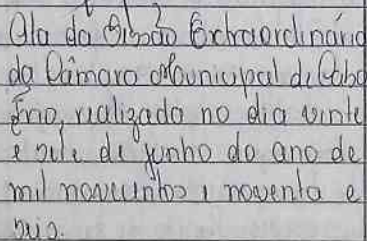 Ata da Sessão Extraordinária
da Câmara Municipal de Cabo
Frio, realizada no dia vinte
e sete de junho do ano de
mil novecentos e noventa e
seis.